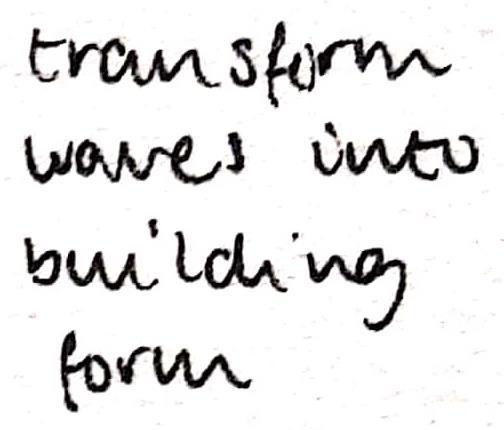 transform
waves into
building
form